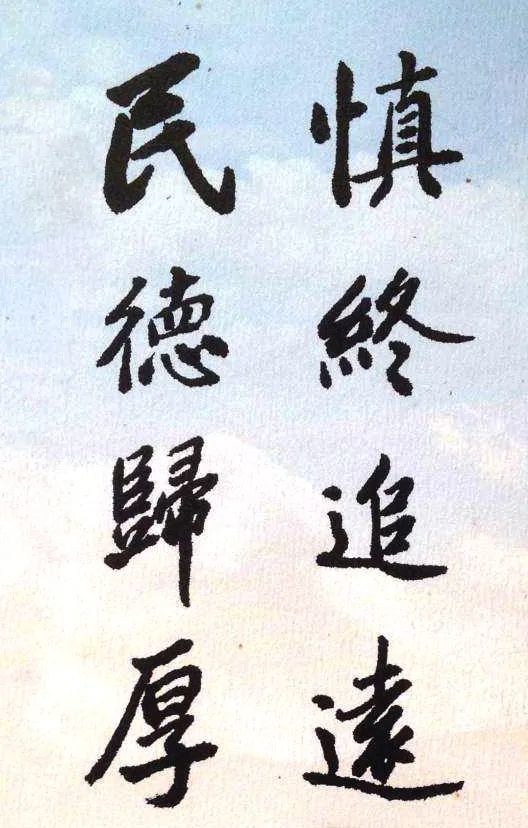 慎終追遠
民德歸厚